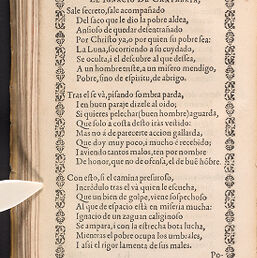 Sale secreto, sale acompañado
Del saco que le dio la pobre aldea,
Ansioso de quedar desentrañado
Por Christo ya, o por quien su pobre sea:
La Luna, socorriendo a su cuydado,
Se oculta, i el descubre al que dessea,
A un hombre triste, a un misero mendigo,
Pobre, sino de espiritu, de abrigo.
Tras el se vâ, pisando sombra parda,
I en buen paraje dizele al oido;
Si quieres pelechar (buen hombre) aguarda,
Que solo a costa desto iràs vestido:
Mas no â de parecerte accion gallarda,
Que doy muy poco, i mucho e recebido;
I aviendo tantos males, en ten por nombre
De honor, que no de ofensa, el de buē hōbre.
Con esto, si el camina presuroso,
Incredulo tras el vâ quien le escucha,
Que un bien de golpe, viene sospechoso
Al que de espacio està en miseria mucha:
Ignacio de un zaguan caliginoso
Se ampara, i con la estrecha bota lucha,
Mientras el pobre ocupa los umbrales,
I assi el rigor lamenta de sus males.
Po-